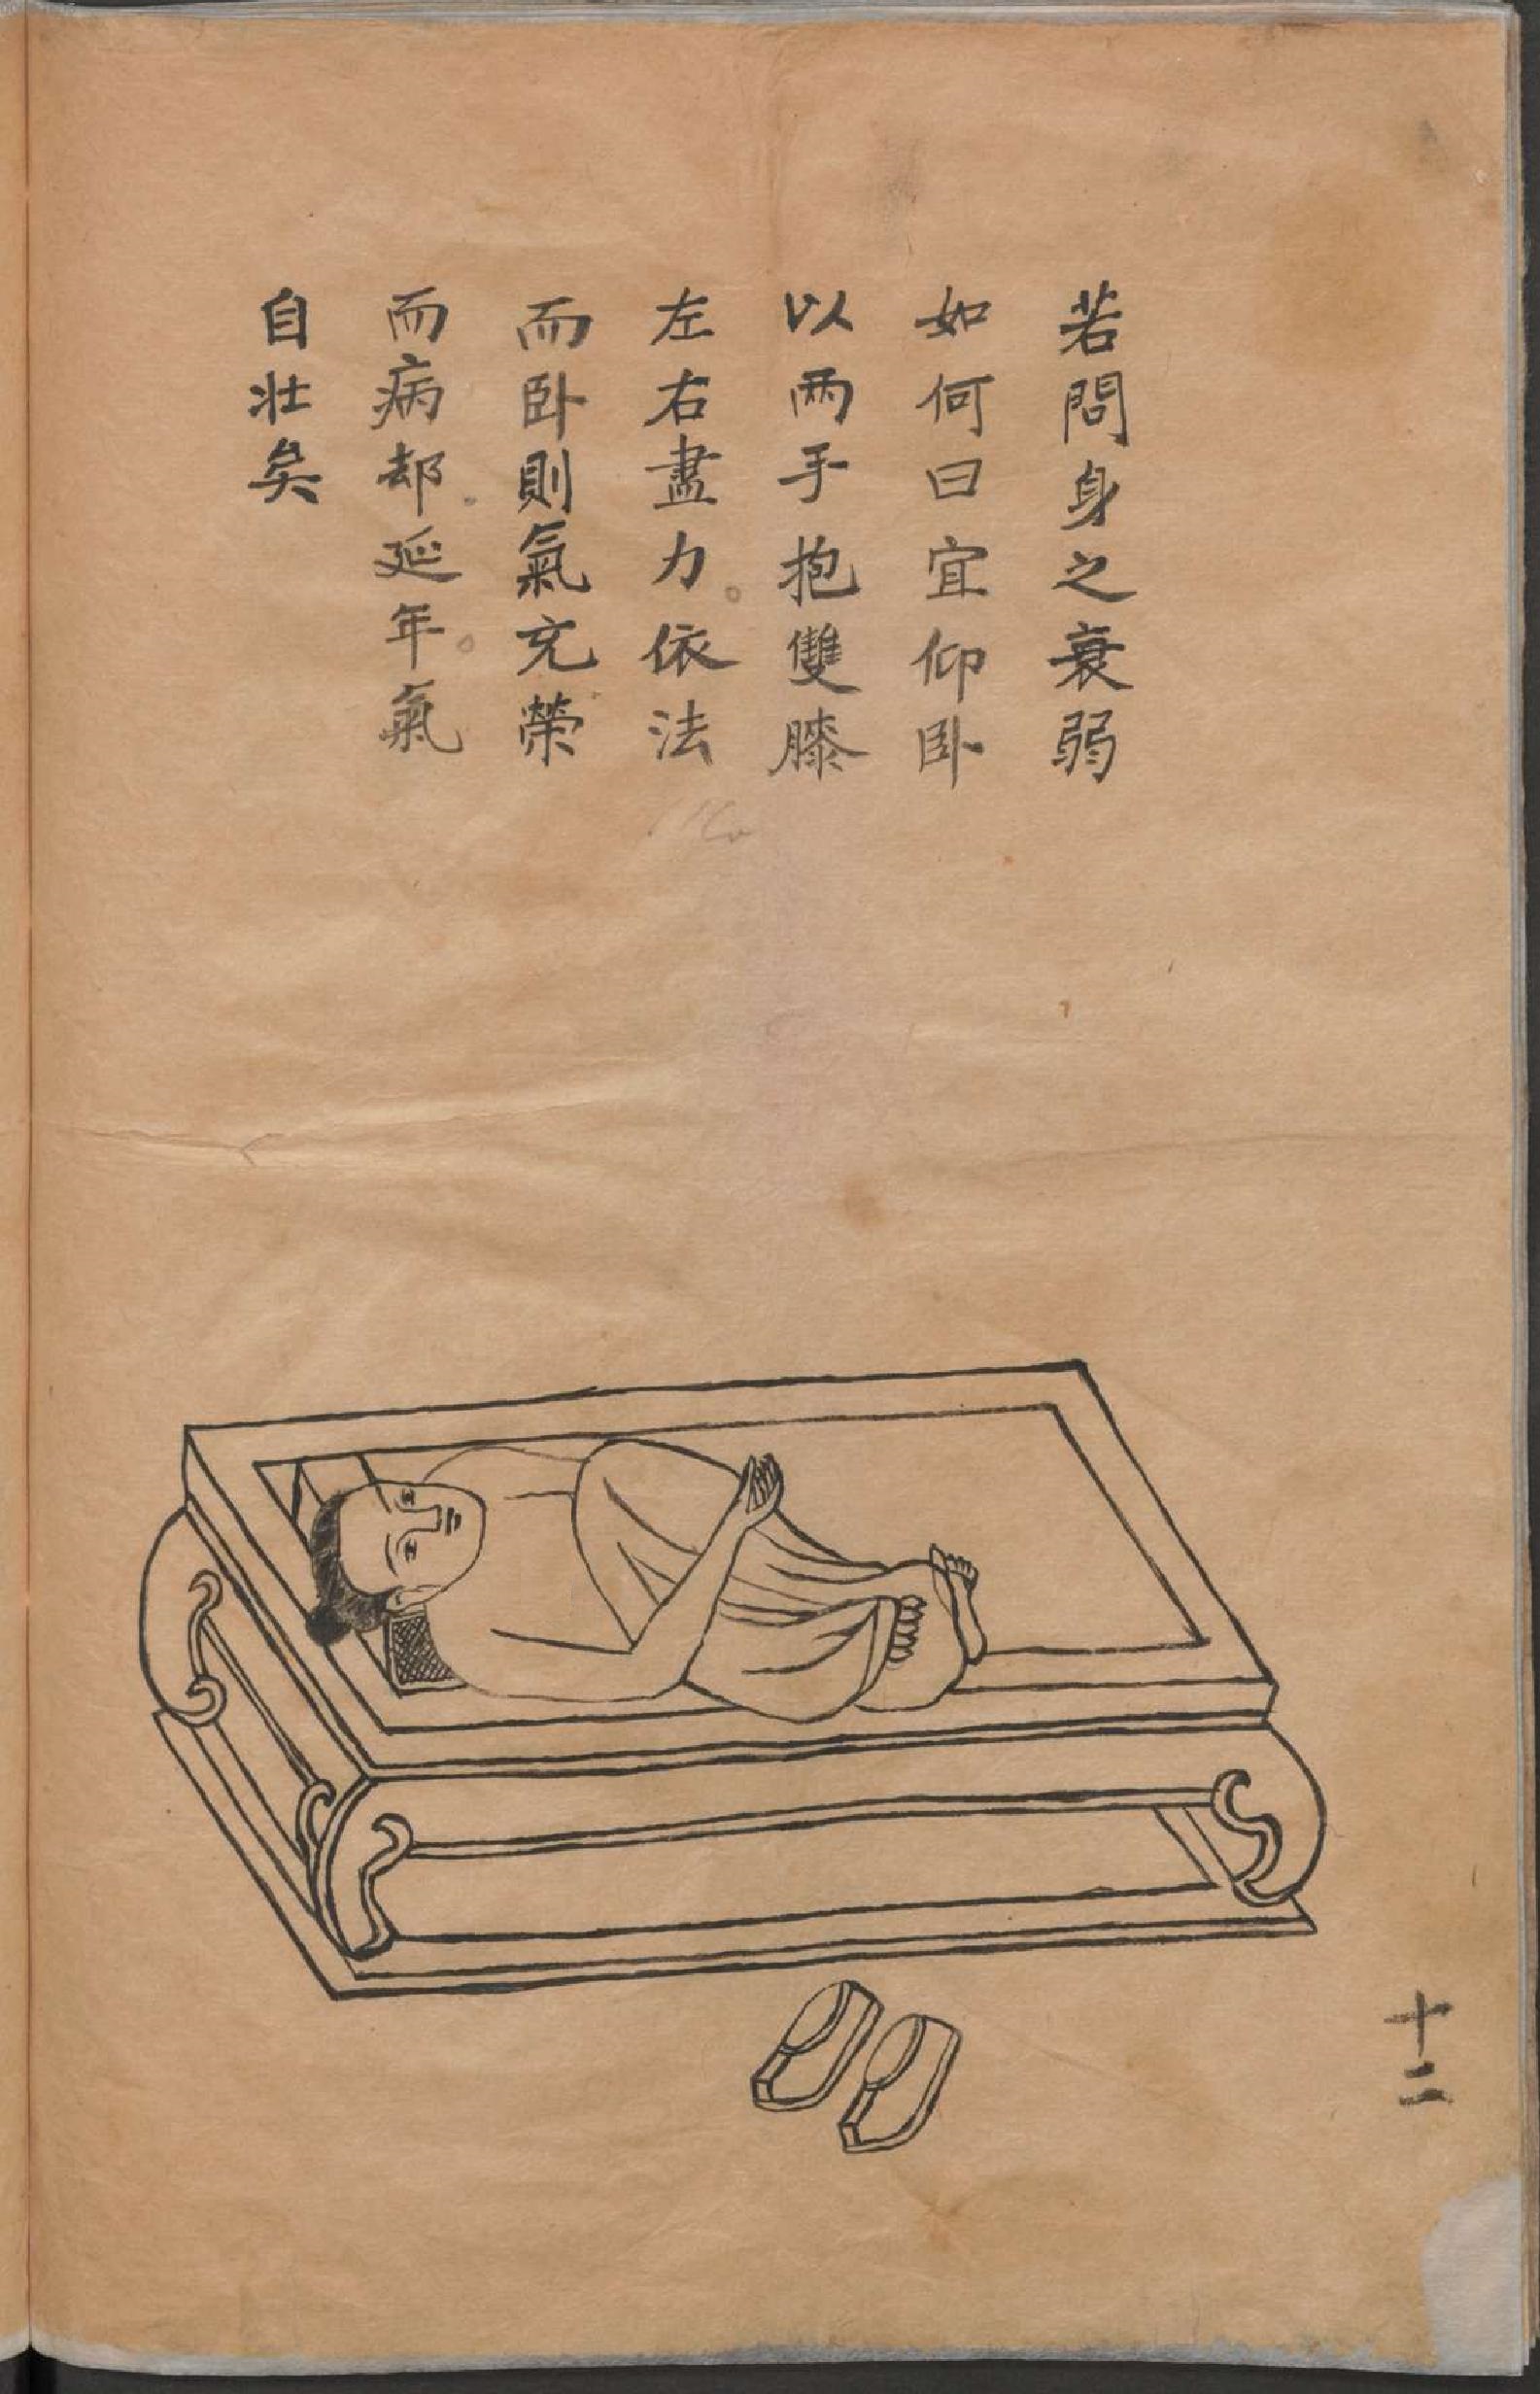 若問身之衰弱
如何曰宜仰卧
以両手抱雙膝
左右盡力。依法
而卧則氣充榮
而病却延年。氣
自壯矣
十二